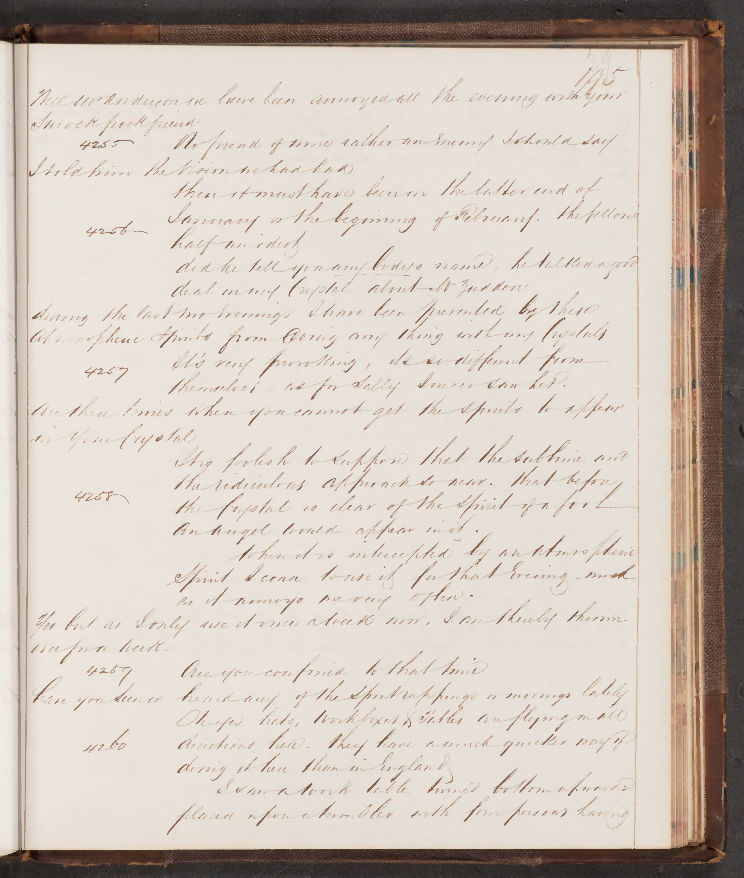 195
Well Mr Anderson we have been annoyed all the evening with your
Smock frock friend
4255 No friend of mine rather an Enemy I should say
I told him the Vision we had had
then it must have been in the latter end of
January or the beginning of February. the fellow's
4256 half an idiot
did he tell you any bodys name, he talked a good
deal in my Crystal about Mr
during the last two Evenings I have been prevented by these
Atmospheric Spirits from doing any thing with my Crystals
4257 It's very provoking, its so different from
themselves - as for Sally I never saw her.
Are there times when you cannot get the spirits to appear
in your Crystal
It is foolish to suppose that the sublime and
the ridiculous approach so near. that before
4258 the Crystal is clear of the Spirit of a fool
an Angel would appear in it.
when it is intercepted by an Atmospheric
Spirit I cease to use it for that Evening - much
as it annoys me very often.
Yes but as I only use it once a week now, I am thereby thrown
over for a week.
4259 Are you confined to that time
have you seen or heard any of the spirit rappings or movings lately
Oh yes hats, workboxes & Tables are flying in all
4260 directions here. they have a much quicker way of
doing it here than in England,
I saw a work table turned bottom upwards
placed upon a tumbler with four persons having